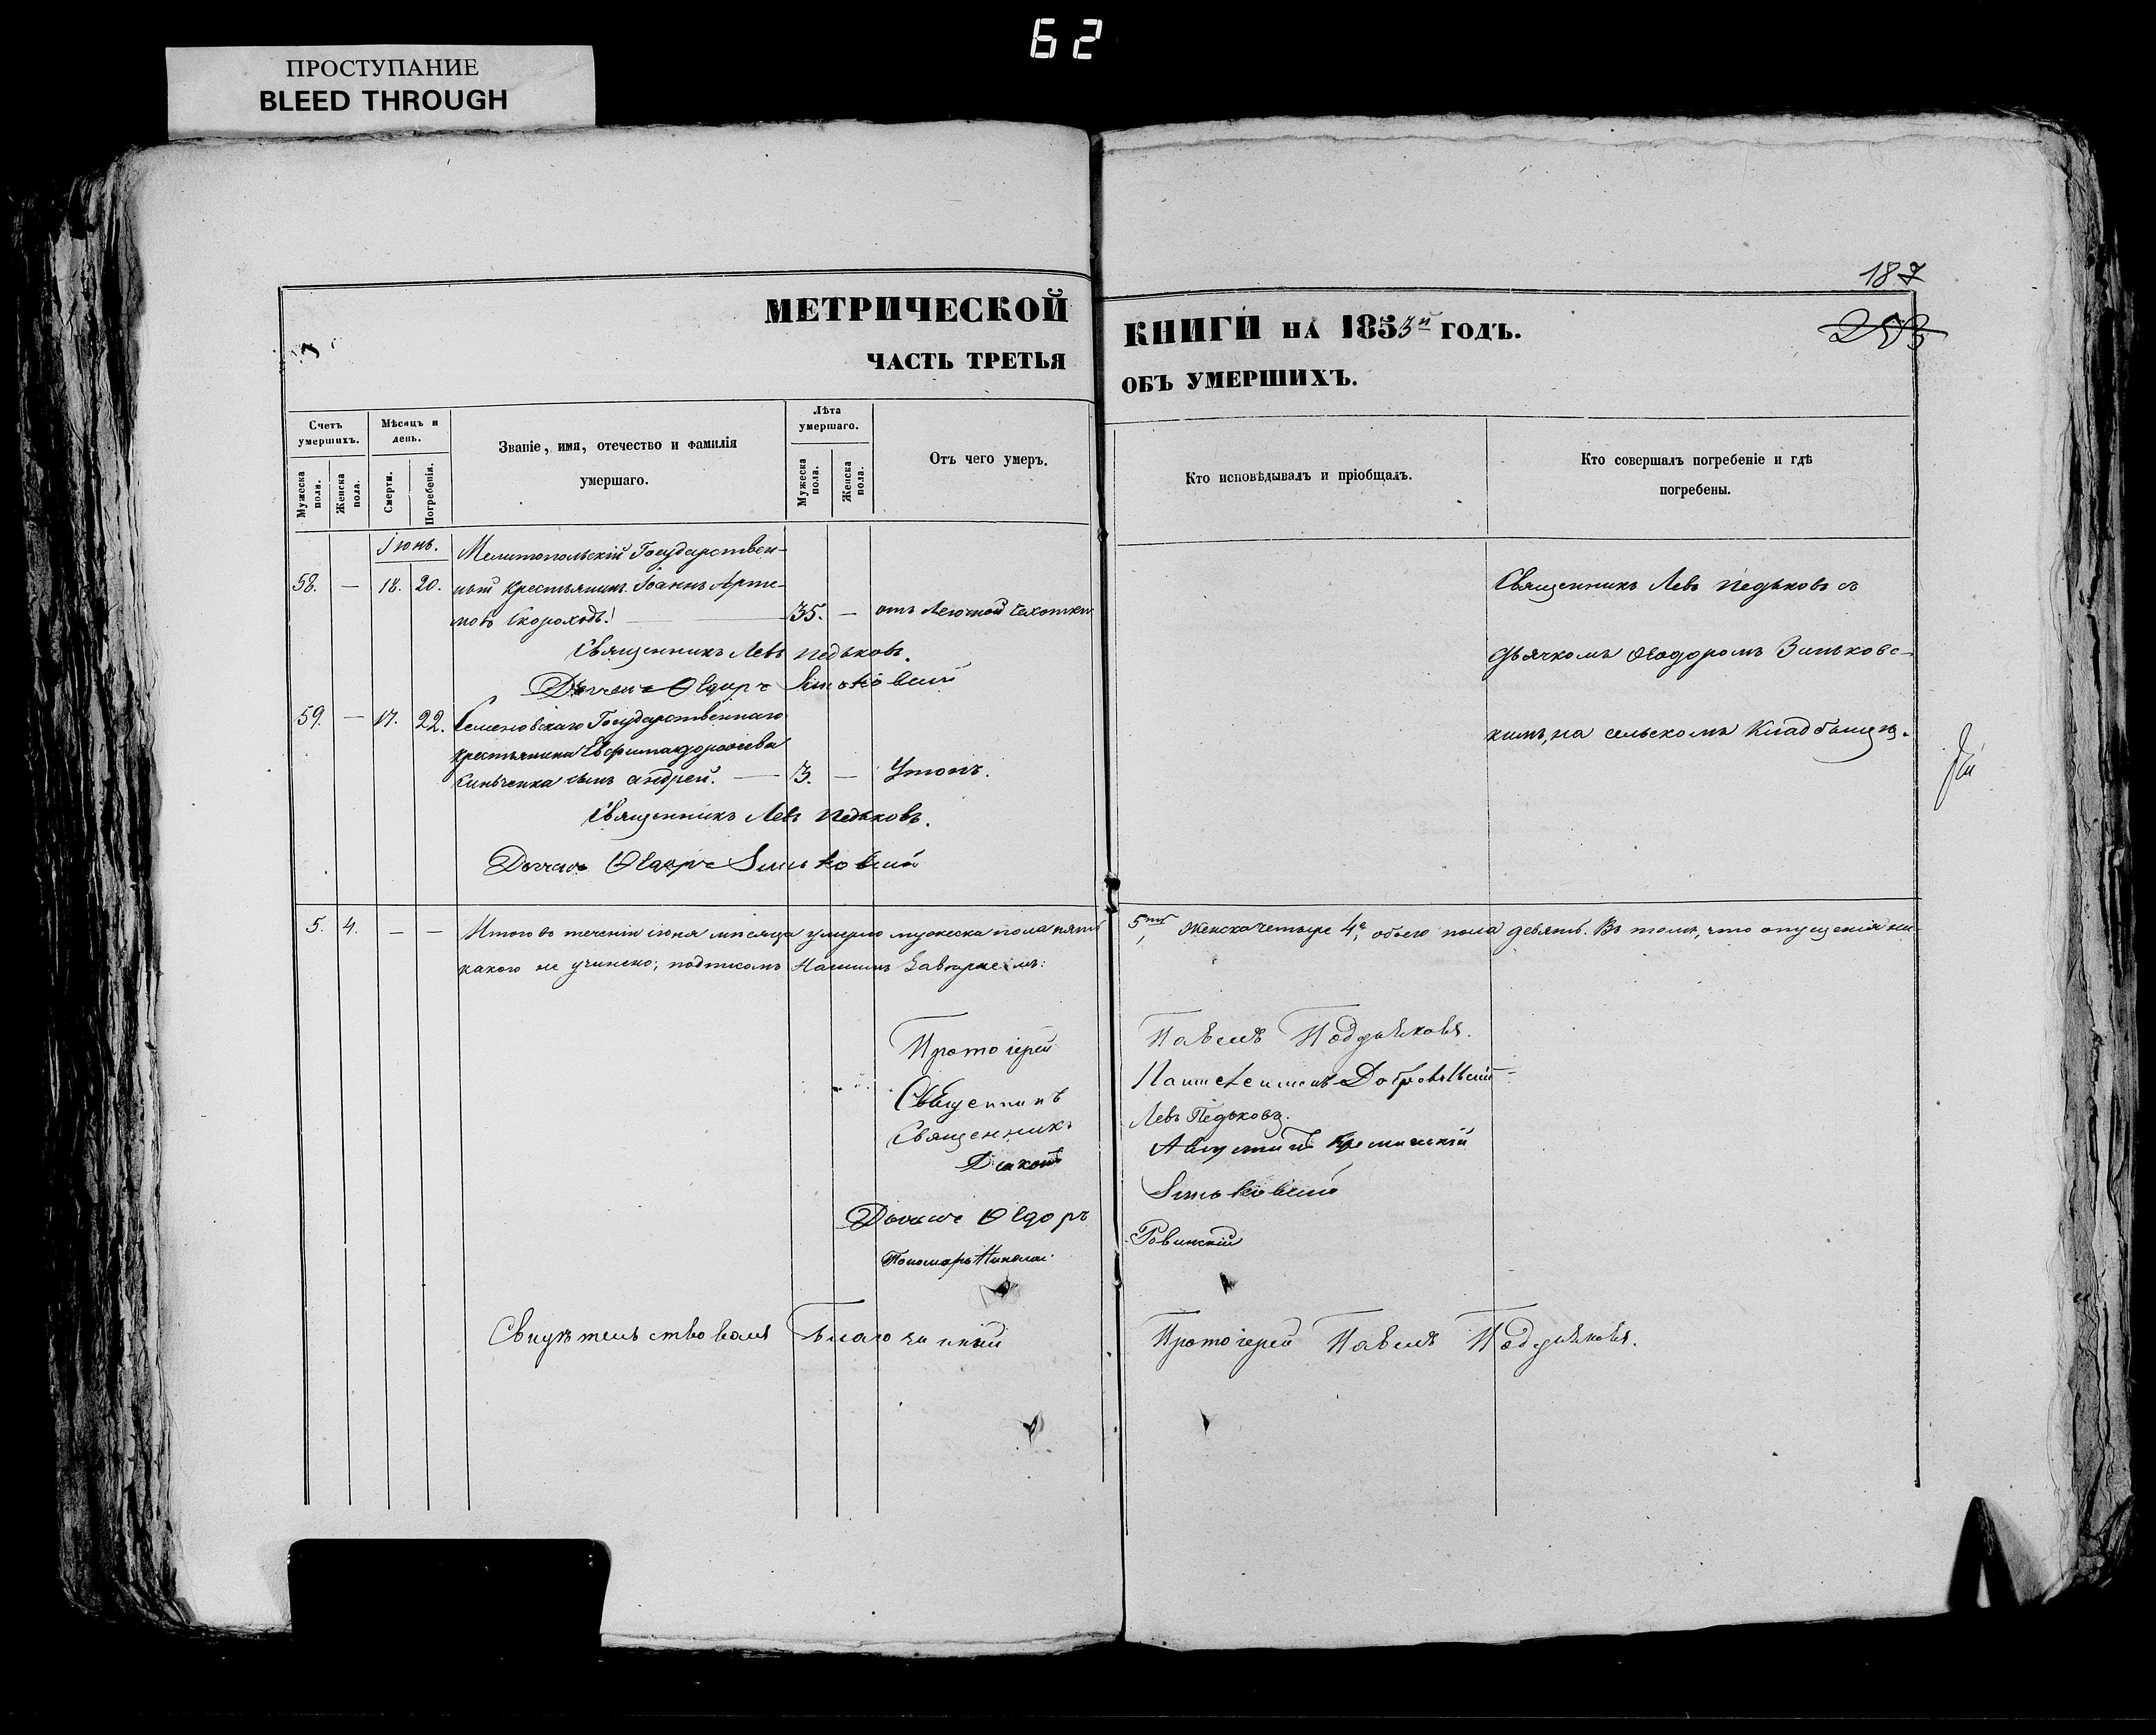 62
ПРОСТУПАНИЕ
BLEED THROUGH
187
253
МЕТРИЧЕСКОЙ КНИГИ НА 1853й ГОДЪ.
ЧАСТЬ ТРЕТЬЯ ОБЪ УМЕРШИХЪ.
Счетъ умершихъ.
Мужеска пола.
Женска пола.
Мѣсяцъ и день.
Смерти.
Погребенія.
Званіе, имя, отечество и фамилія
умершаго.
Лѣта умершаго.
Мужеска пола.
Женска пола.
Отъ чего умеръ.
Кто исповѣдывалъ и пріобщалъ.
Кто совершалъ погребеніе и гдѣ
погребены.
Іюнь.
Мелитопольскій Государствен-
58. — 18. 20. ный крестьянинъ Іоаннъ Арте-
мовъ Скороходъ. 35. — отъ Легочной Чахотки
Священникъ Левъ Педьковъ.
Дьячокъ Ѳеодоръ Зиньковскій
Священникъ Левъ Педьковъ съ
дьячкомъ Ѳеодоромъ Зиньковс-
кимъ, на сельскомъ Кладбищѣ.
59. — 17. 22. Семеновскаго Государственнаго
крестьянина Дороѳеева
сынъ андрей. — 3. — Утопъ.
Священникъ Левъ Педьковъ.
Дьячокъ Ѳеодоръ Зиньковскій
5. 4. — — Итого въ теченіи іюня мѣсяца умерло мужеска пола пять 5ть, Женска четыре 4е, обоего пола девять. Въ томъ, что опущенія ни-
какого не учинено; подписомъ Нашимъ Заверяемъ:
Протоіерей Павелъ Поддьяковъ.
Священникъ Пантелеимонъ Добровольскій
Священникъ Левъ Педьковъ.
Діаконъ Августинъ
Дьячокъ Ѳеодоръ Зиньковскій
Пономарь Николай Ровинскій
Свидѣтельствовалъ Благочинный Протоіерей Павелъ Поддьяковъ.